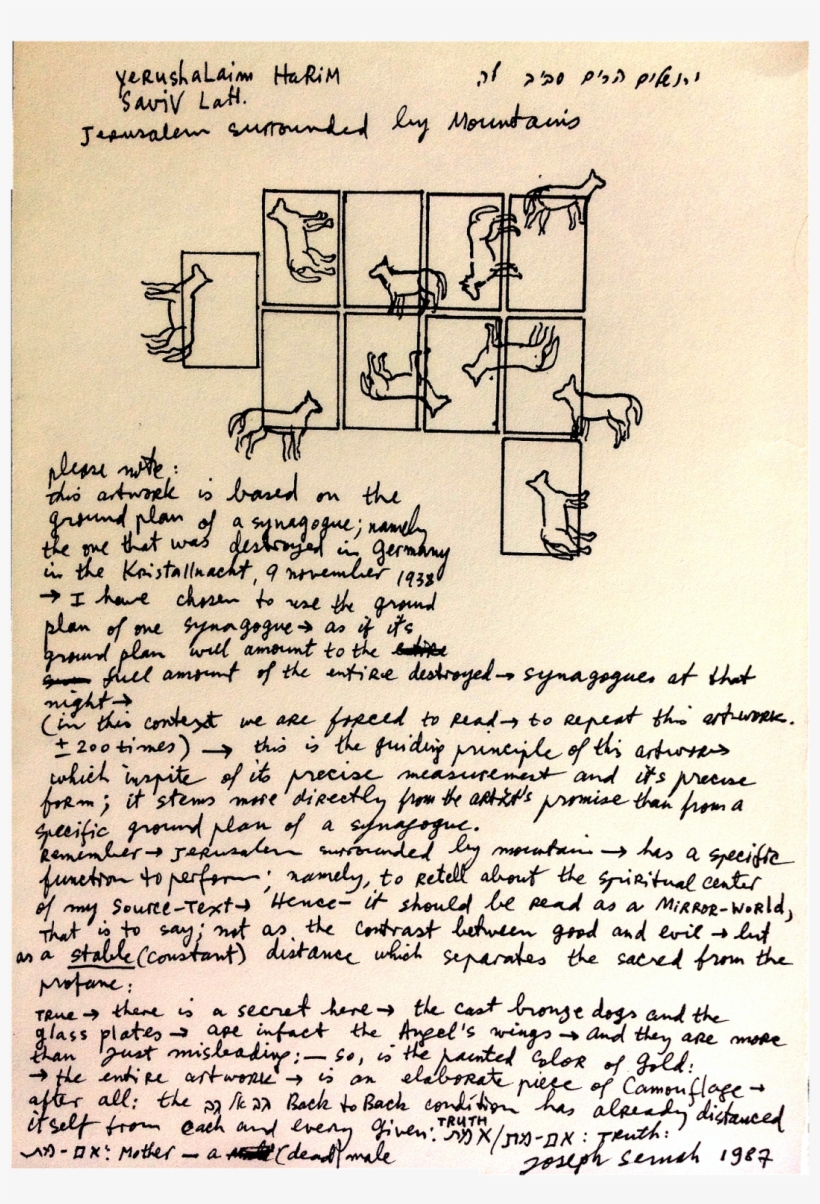 YeRushaLaim HaRiM
SaviV LaH.
ירושלים הרים סביב לה
Jerusalem surrounded by Mountains
please note:
this artwork is based on the
ground plan of a synagogue; namely
the one that was destroyed in Germany
in the Kristallnacht, 9 november 1938
→ I have chosen to use the ground
plan of one synagogue → as if it's
ground plan will amount to the
full amount of the entire destroyed → synagogues at that
night →
(in this context we are forced to read → to repeat this artwork.
± 200 times) → this is the guiding principle of this artwork
which inspite of its precise measurement and it's precise
form; it stems more directly from the artist's promise than from a
specific ground plan of a synagogue.
Remember → Jerusalem surrounded by mountain → has a specific
function to perform; namely, to retell about the spiritual center
of my Source-Text → Hence – it should be read as a MiRROR-WoRld,
that is to say; not as the contrast between good and evil → but
as a stable (constant) distance which separates the sacred from the
profane:
TRUE → there is a secret here → the cast bronze dogs and the
glass plates → are infact the Angel's wings → and they are more
than just misleading: — so, is the painted Color of Gold:
→ the entire artwork → is an elaborate piece of Camouflage →
after all: the גב אל גב Back to Back condition has already distanced
itself from each and every given: TRUTH אמת/אם-מת: Truth:
אם-מת: Mother — a (dead) male
Joseph Semah 1987